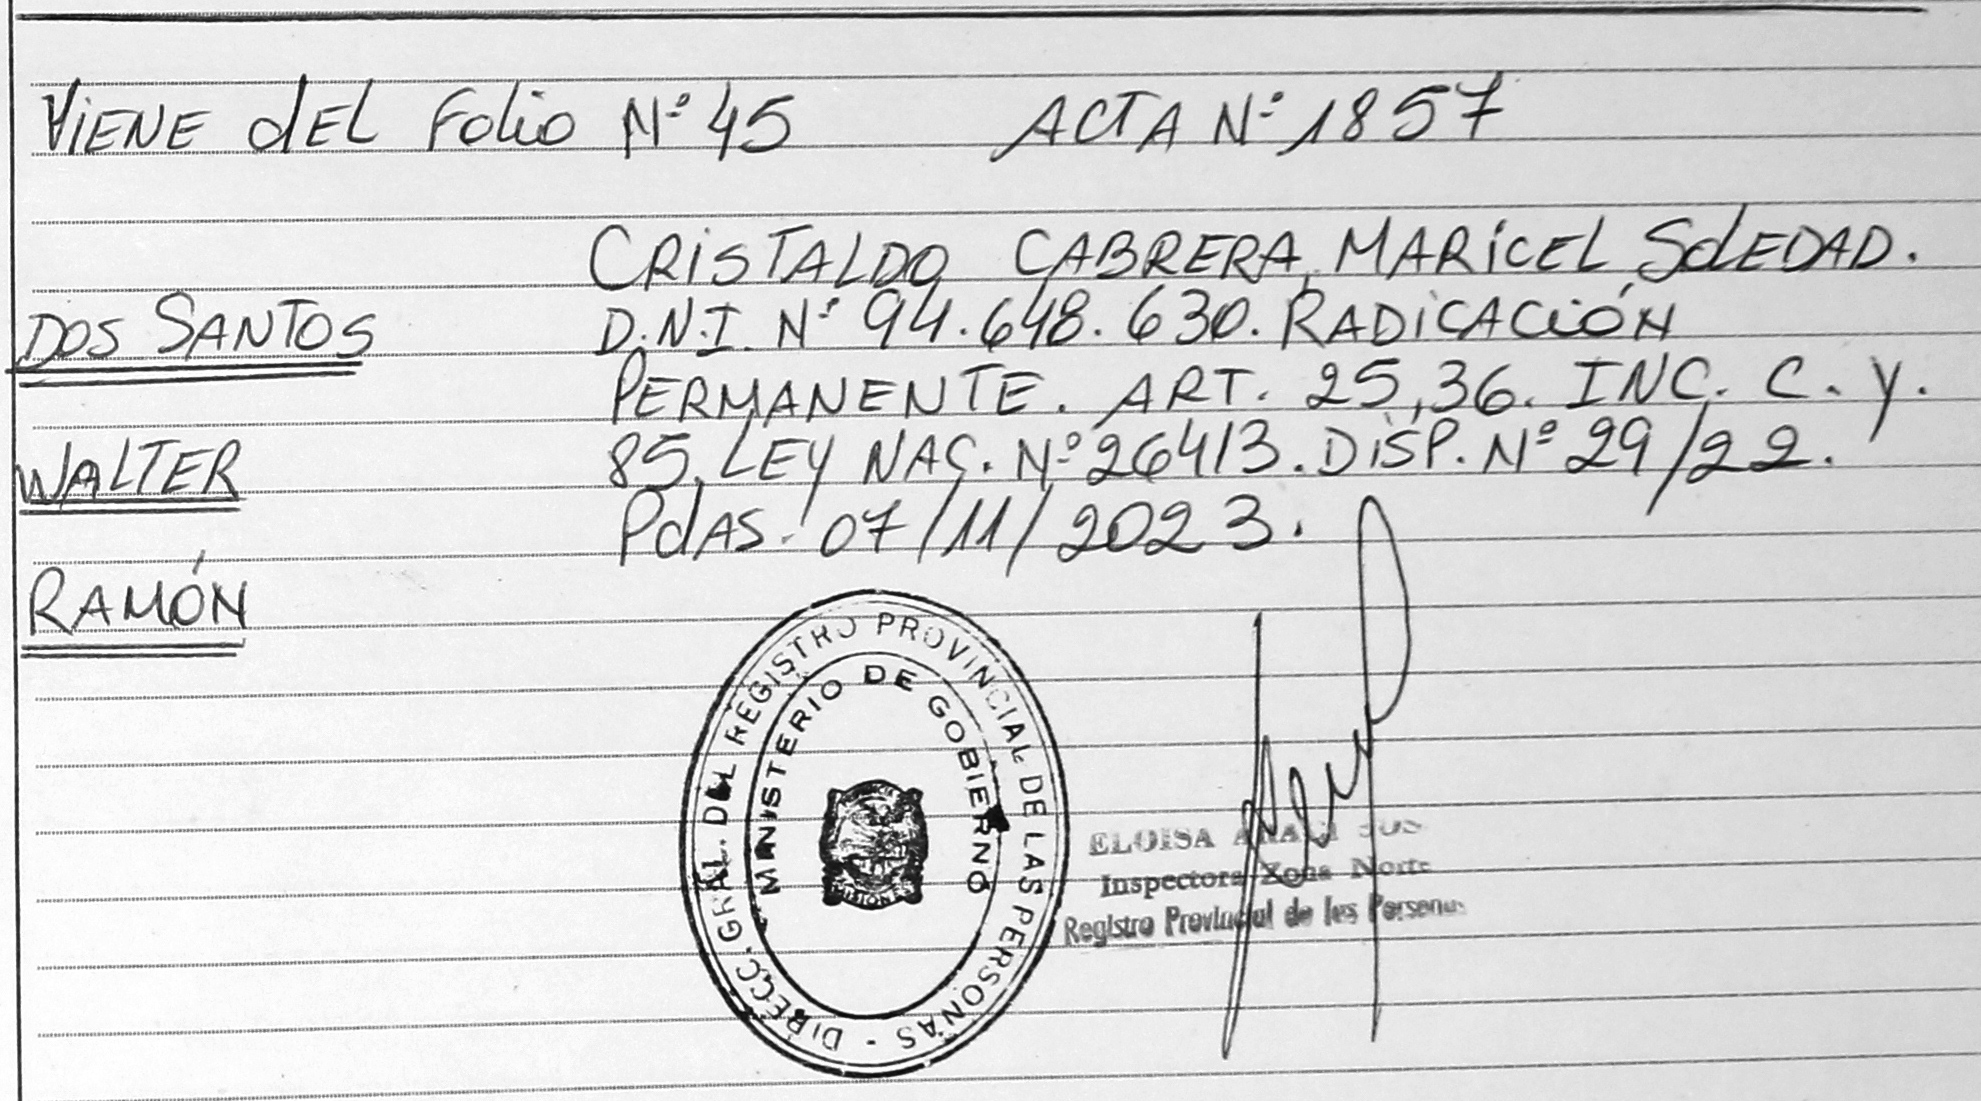 VIENE dEL Folio Nº 45 ACTA Nº 1857
CRISTALDO CABRERA, MARICEL SOLEDAD.
DOS SANTOS
D.N.I. Nº 94.648.630. RADICACIÓN
PERMANENTE. ART. 25,36. INC. C. Y.
WALTER
85. LEY NAC. Nº 26413. DISP. Nº 29/22.
PdAS. 07/11/2023.
RAMÓN
DIRECC. GRAL. DEL REGISTRO PROVINCIAL DE LAS PERSONAS -
MINISTERIO DE GOBIERNO
ELOISA
Inspectora Zona Norte
Registro Provincial de las Personas